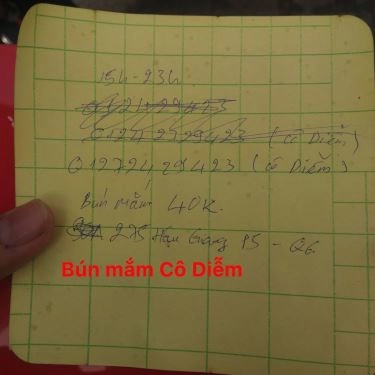 15h - 23h.
01272429423 (cô Diễm)
01272429423 (cô Diễm)
Bún mắm 40K.
275 Hậu Giang P5 - Q6
Bún mắm Cô Diễm